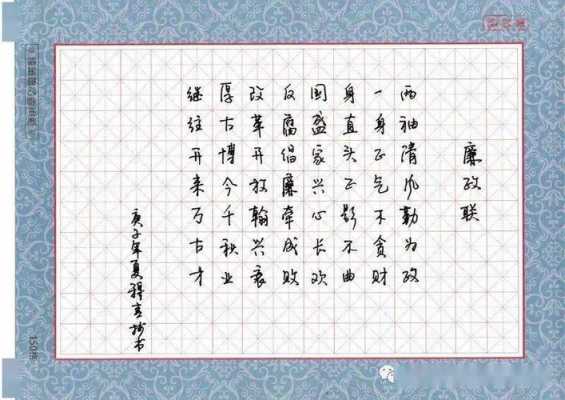 廉政联
两袖清风勤为政
一身正气不贪财
身直头正影不曲
国盛家兴心长欢
反腐倡廉牵成败
改革开放翰兴衰
厚古博今千秋业
继往开来万古才
庚子年夏
书